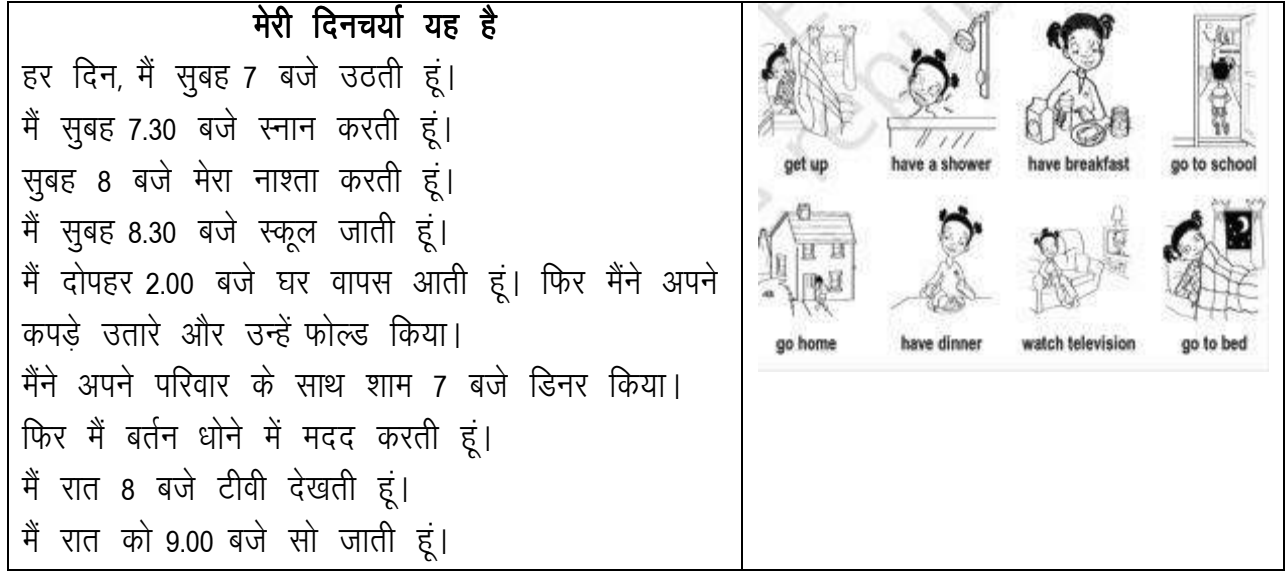 मेरी दिनचर्या यह है
हर दिन, मैं सुबह 7 बजे उठती हूं।
मैं सुबह 7.30 बजे स्नान करती हूं।
सुबह 8 बजे मेरा नाश्ता करती हूं।
मैं सुबह 8.30 बजे स्कूल जाती हूं।
मैं दोपहर 2.00 बजे घर वापस आती हूं। फिर मैंने अपने
कपड़े उतारे और उन्हें फोल्ड किया।
मैंने अपने परिवार के साथ शाम 7 बजे डिनर किया।
फिर मैं बर्तन धोने में मदद करती हूं।
मैं रात 8 बजे टीवी देखती हूं।
मैं रात को 9.00 बजे सो जाती हूं।
get up have a shower have breakfast go to school
go home have dinner watch television go to bed